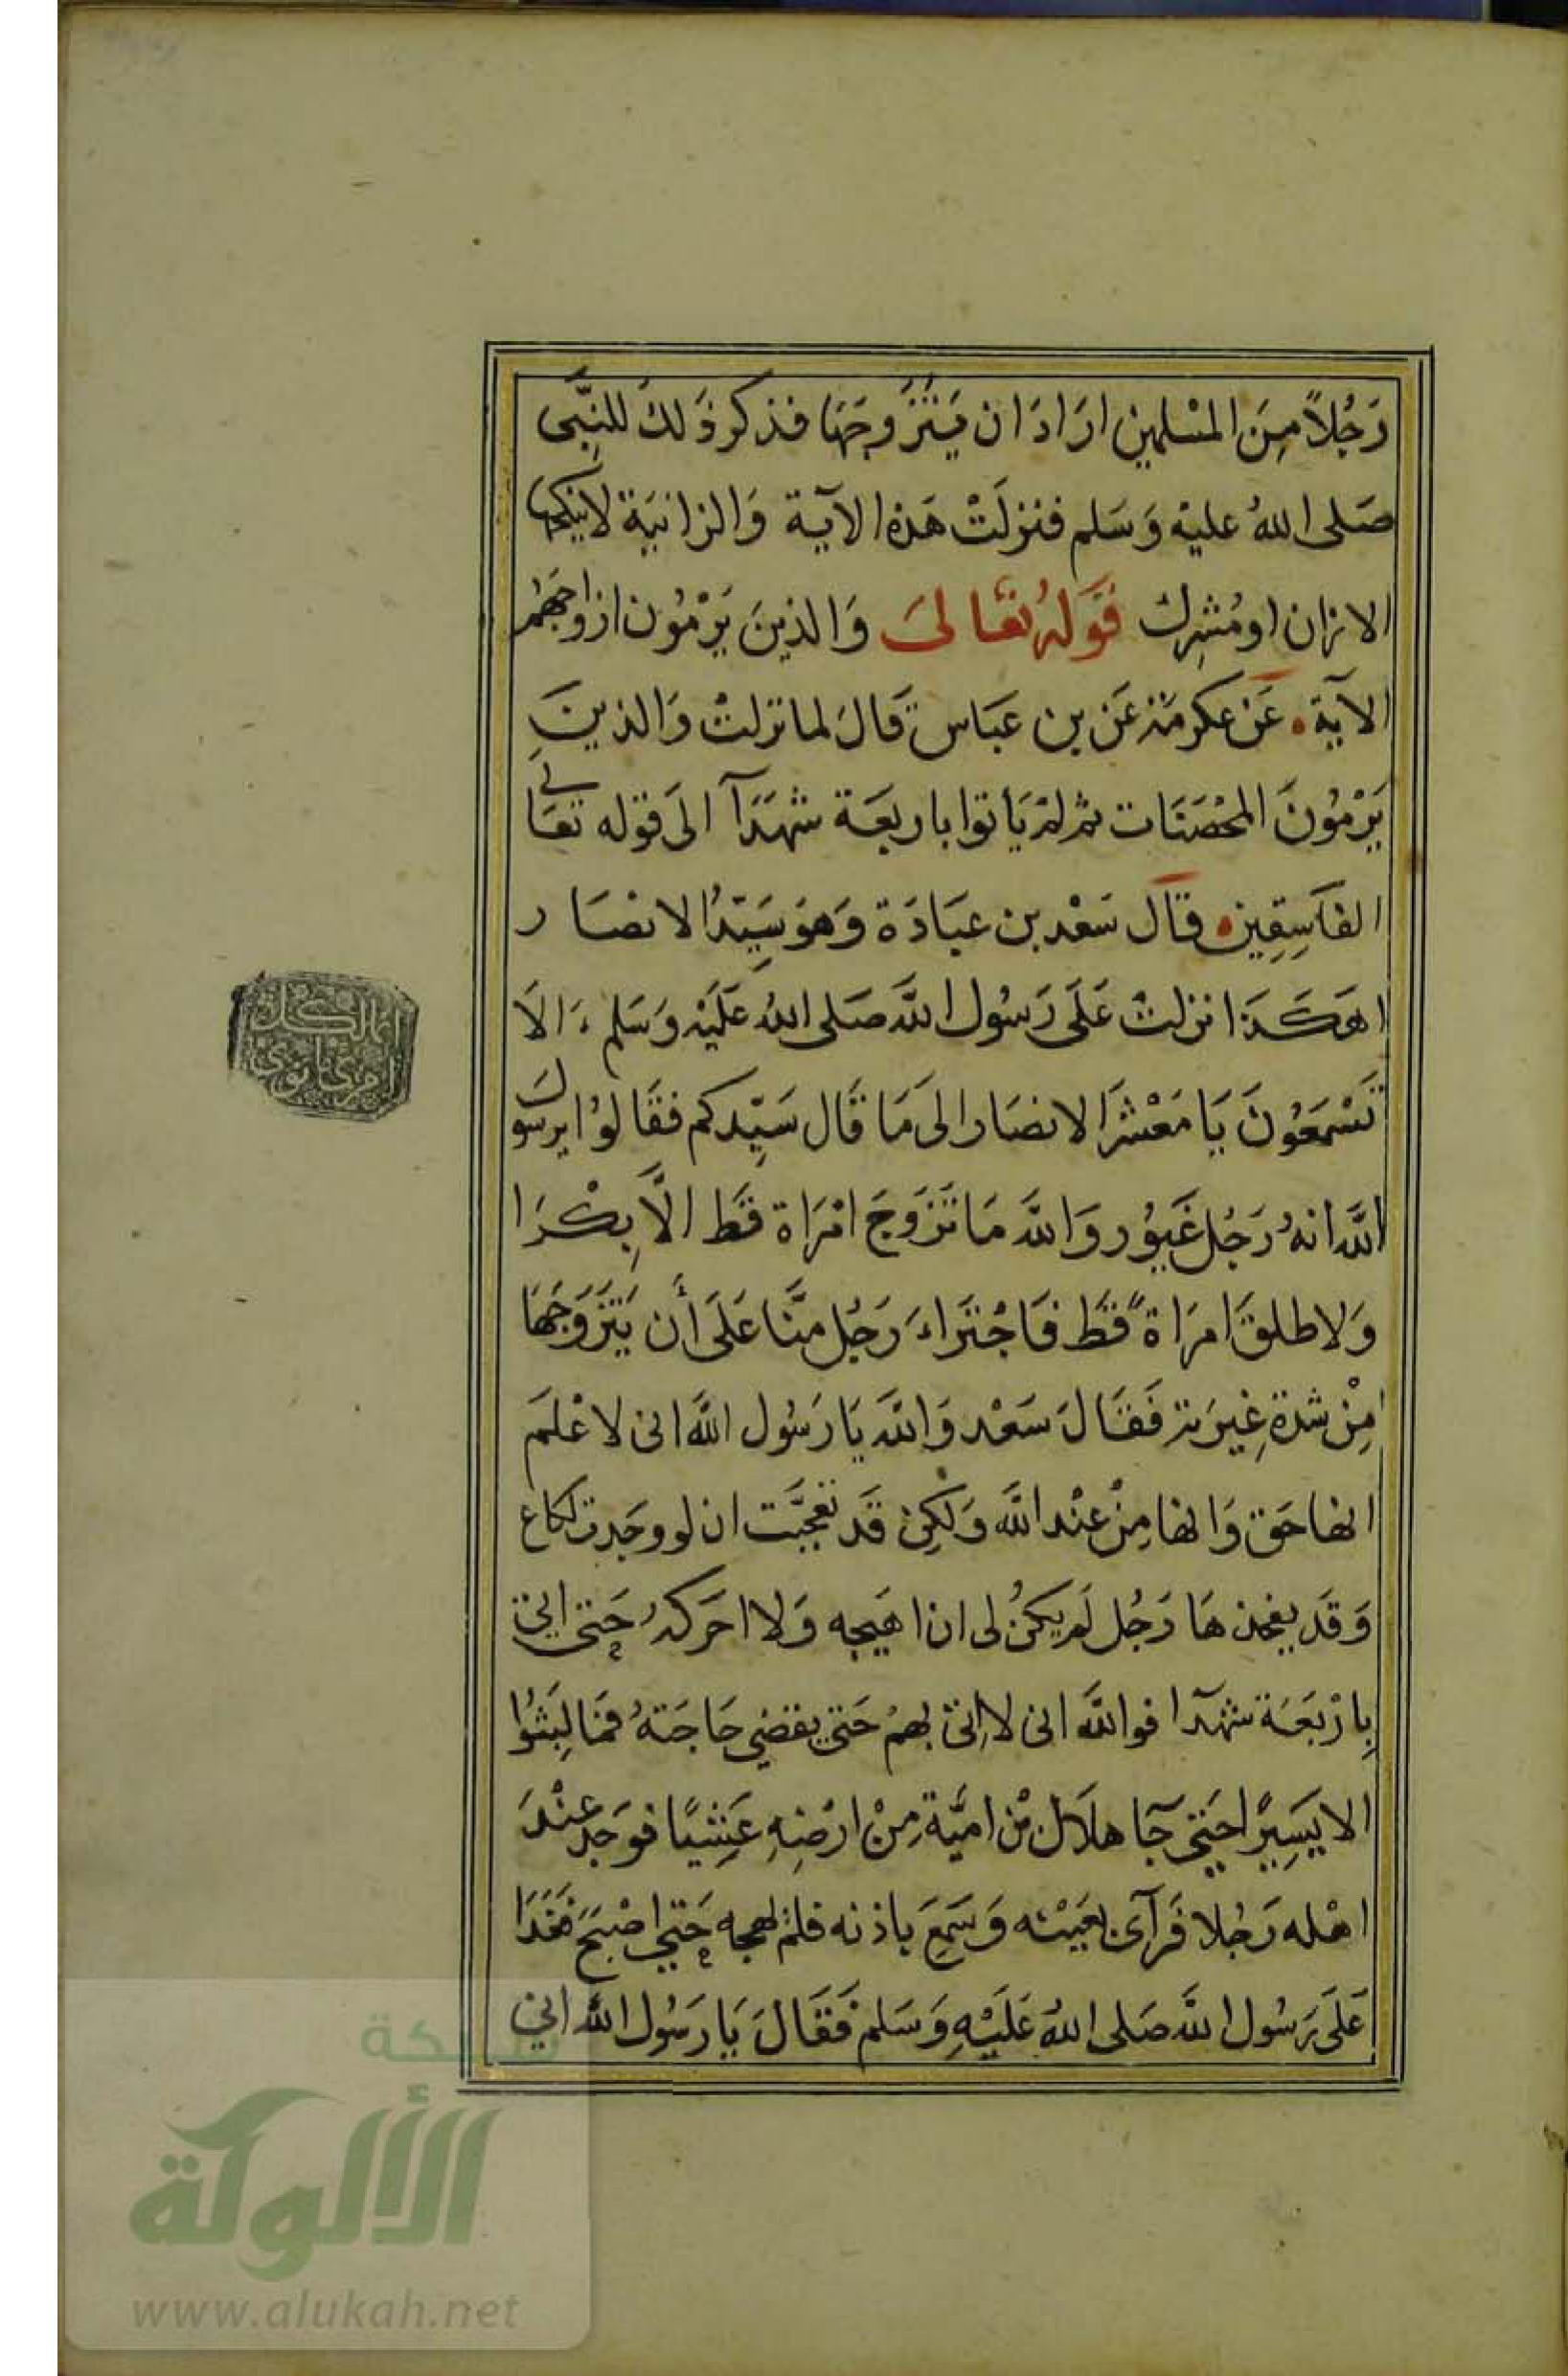 رَجُلاً مِنَ المسْلمين ارَادَ ان يَتَزَوجَهَا فذكر ذَلك للنبَّى
صَلى اللهُ عليْه وَسَلم فنزلَتْ هَذه الآيـة وَالزانيَة لا ينكحها
الا زان او مُشرِك قَولهُ تعَالىَ وَالذينَ يَرْمُون ازوَاجهُم
الآية عَن عكرمَة عَن بن عبَاس قَالَ لما نزلتْ وَالذينَ
يَرْمُونَ المحْصَنَات ثم لمْ يَأتوا باربعَة شهَدَآ الىَ قوله تعَالى
الفَاسِقِين فقال سَعْد بن عبَادَة وَهوَ سَيّدُ الانصَار
اهَكَـذا انزلت عَلَى رَسُول اللَّه صَلى اللهُ عَلَيْه وَسَلم الاَ
تَسْمَعُونَ يَا مَعْشَرَ الانصَار الىَ مَا قَال سَيّدكم فقَالوُا يرسول
اللَّه انهُ رَجُل غَيوُر وَاللَّه مَا تَزَوجَ امْرَاة قَط الاَّ بِكْـرَا
وَلا طلقَ امرَاةً قَطَ فَاجْتَراءَ رَجُل منَّا عَلَى أن يَتَزَوَجَهَا
مِنْ شدة غِيرَته فَقَالَ سَعْد وَاللَّه يَا رَسُول اللَّه انى لاعْلَم
انها حَق وَانها مِنْ عنْد اللَّه وَلَكِن قَد تعجَّبَت ان لو وجَدت لكاع
وَقَد يفخذهَا رَجُل لَم يكنُ لى ان اهَيجه وَلا احَركهُ حَتى اتى
بِارْبَعَة شهدآ فوالله انى لا اتى بهمْ حَتى يقضي حَاجَتهُ فمَا لبَثوُا
الا يَسِيرًا حَتى جَآ هلاَل بْن اميَّة مِنْ ارْضِهِ عَشِيًا فوَجد عنْدَ
اهْله رَجُلا فَرَآى بعَيْنه وَسَمعَ باذنه فلمْ يهجه حَتى اصْبَحَ فغَدَا
عَلَى رَسُول اللَّه صَلى اللهُ عَلَيْهِ وَسَلم فَقَالَ يَا رَسُول اللَّه انى
شبكة
الألوكة
www.alukah.net